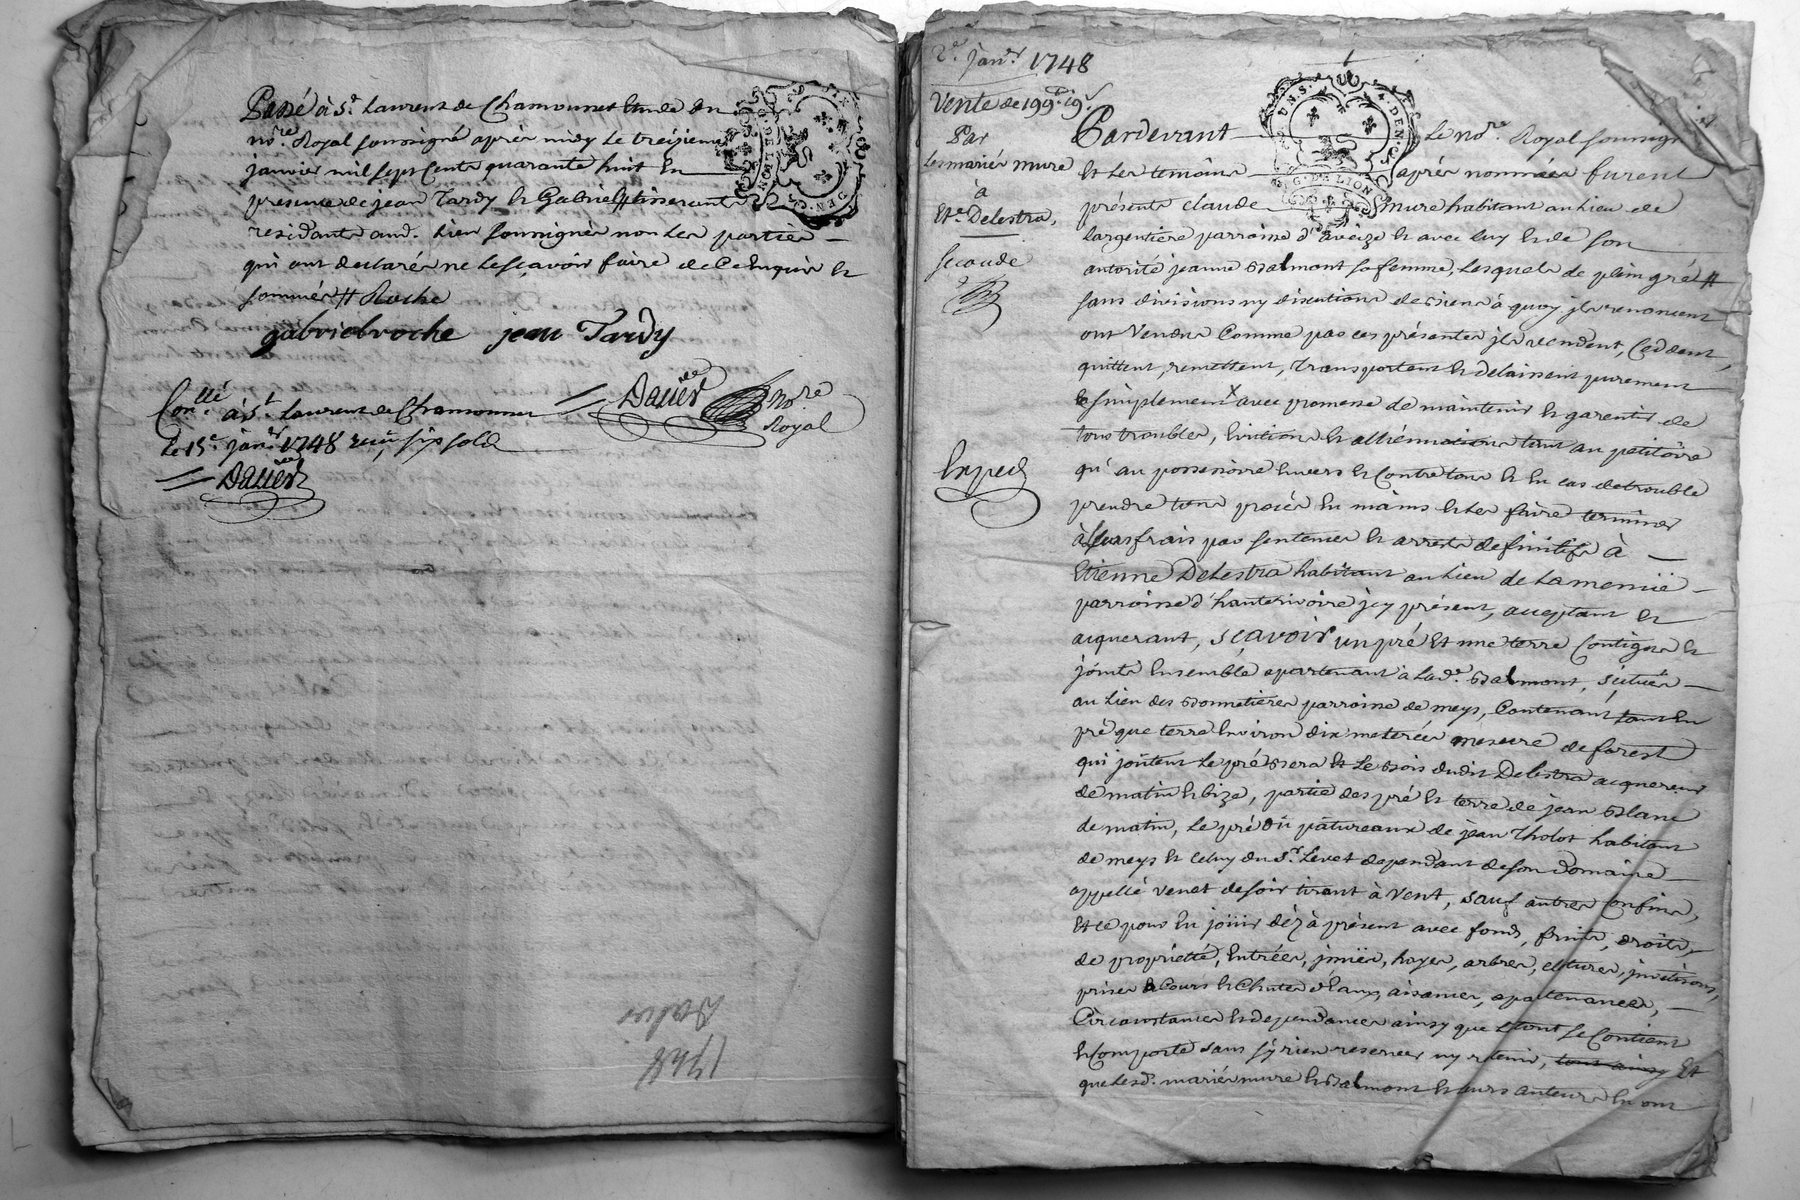 Passé à St. Laurent de Chamousset Etude du
no.re Royal soussigné apres midy le treizieme
janvier mil sept Cents quarante huit En
presence de jean Tardy & Gabriel // tisserants
residants aud. Lieu soussignés non les parties
qui ont declarés ne le sçavoir faire de ce Enquis &
sommés // Roche
gabriel roche jean Tardy
Con.llé à St. Laurent de Chamousset
Le 15e. janr. 1748 reçu six sols
no.re Royal
1748
2e. janr. 1748
Vente de 199# 19s
Par
Les mariés mure
à
Ete. Delestra,
seconde
Exped
UN. S. 4. DEN.
G. DE LION
Pardevant Le no.re Royal soussigné
Et Les temoins après nommés furent
présents claude mure habitant au Lieu de
Largentiere parroisse d'aveize & avec luy & de son
autorité jeanne Balmont sa femme, Lesquels de plein gré //
sans divisions ny discutions de biens à quoy jls renoncent
ont Vendus Comme par ces présentes jls vendent, Ceddent,
quittent, remettent, Transportent & Delaissent purement
& simplement avec promesse de maintenir & garentir de
tous troubles, Evictions & alliénnations tant au petitoire
qu'au possessoire Envers & Contre tous & En cas de trouble
prendre tous procés En mains & Les faire terminer
à Leurs frais par sentences & arrests definitifs à
Etienne Delestra habitant au Lieu de La menüe
parroisse d'hauterivoire jcy présent, acceptant &
acquerant, sçavoir un pré Et une terre Contigus &
joints Ensemble apartenant à Lade. Balmont, scitués
au Lieu des Bonnetieres parroisse de meys, Contenants tant En
pré que terre Environ dix meterées mesure de forest
qui joûtent Le pré Et Le Bois dudit Delestra acquereur
de matin & bize, partie des pré & terre de jean Blanc
de matin, Le pré oü pâtureaux de jean Tholot habitant
de meys Et Celuy du Sr. Levet dependant de son Domaine
appellé venet de soir tirant à Vent, sauf autres Confins,
Et ce pour En joüir déz à présent avec fonds, fruits, droits,
de propriétté, Entrées, jssües, hayes, arbres, clotures,
prises & Cours & Chutes d'Eaux, aisances, apartenances,
Circonstances & dependances ainsy que Le tout se Contient
& Comporte sans s'y rien reserver ny retenir, tout ainsy Et
que Lesd. mariés mure & Balmont & Leurs auteurs En ont